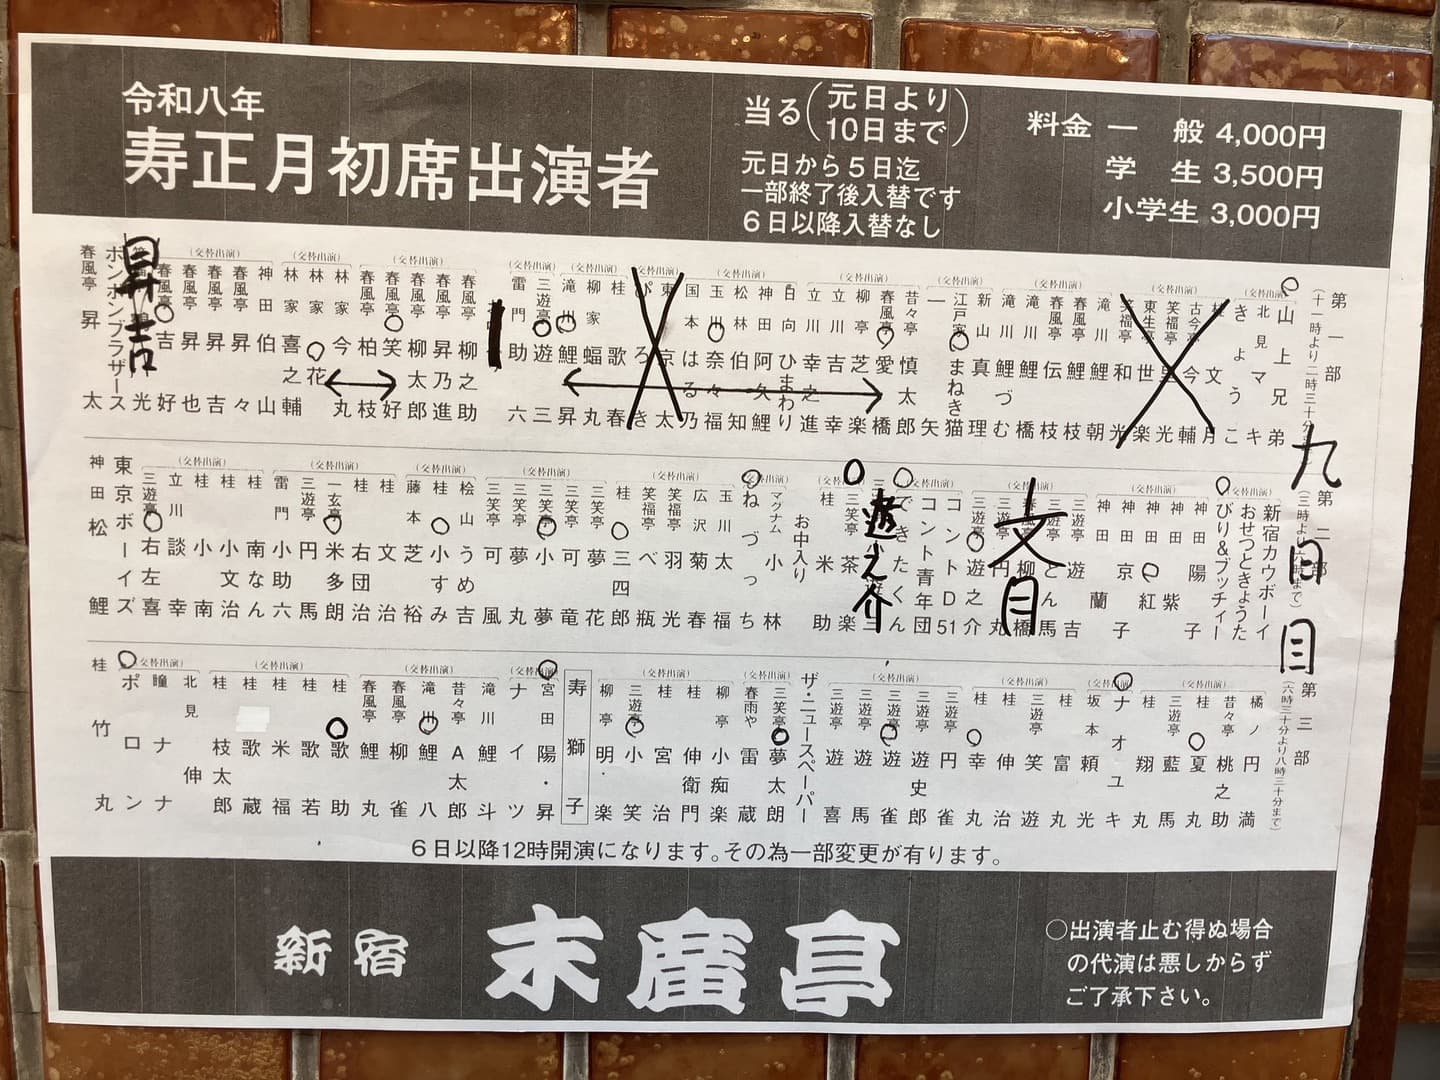 令和八年
寿正月初席出演者
当る(元日より10日まで)
元日から5日迄
一部終了後入替です
6日以降入替なし
料金 一般 4,000円
学生 3,500円
小学生 3,000円
九日目
第一部
(十一時より二時三十分
(交替出演)
山上兄弟
北見マキ
きょうこ
(交替出演)
桂文月
古今亭今輔
笑福亭
東生亭世楽
笑福亭和光
滝川鯉朝
(交替出演)
春風亭鯉枝
春風亭伝枝
滝川鯉橋
滝川鯉づむ
新山真理
(交替出演)
江戸家まねき猫
一矢
昔々亭慎太郎
(交替出演)
春風亭愛橋
柳亭芝楽
立川吉幸
立川幸之進
日向ひまわり
(交替出演)
神田阿久鯉
松林伯知
玉川奈々福
国本はる乃
(交替出演)
東京太
ぴろき
桂歌春
(交替出演)
柳家蝠丸
滝川鯉昇
(交替出演)
三遊亭遊三
雷門助六
春風亭柳之助
(交替出演)
春風亭昇乃進
春風亭柳太郎
春風亭笑好
春風亭柏枝
林家今丸
(交替出演)
林家花
林家喜之輔
神田伯山
(交替出演)
春風亭昇々
春風亭昇吉
春風亭昇也
春風亭吉好
昇吉
ボンボンブラザース
春風亭昇太
第二部
新宿カウボーイ
(交替出演)
おせつときょうた
びり&ブッチィー
(交替出演)
神田陽子
神田紫
神田紅
神田京子
神田蘭
(交替出演)
三遊亭遊吉
文月
三遊亭遊之介
(交替出演)
コントD51
コント青年団
できたくん
遊之介
三笑亭茶楽
桂米助
お中入り
マグナム小林
ねづっち
玉川太福
(交替出演)
広沢菊春
笑福亭羽光
笑福亭べ瓶
桂三四郎
(交替出演)
三笑亭夢花
三笑亭可竜
三笑亭小夢
三笑亭夢丸
三笑亭可風
桧山うめ吉
(交替出演)
桂小すみ
藤本芝裕
桂文治
(交替出演)
桂右団治
一玄亭米多朗
三遊亭円馬
雷門小助六
桂南なん
(交替出演)
桂小文治
桂小南
立川談幸
三遊亭右左喜
東京ボーイズ
神田松鯉
第三部
(六時三十分より八時三十分まで)
橘ノ円満
(交替出演)
昔々亭桃之助
桂夏丸
三遊亭藍馬
桂翔丸
ナオユキ
(交替出演)
坂本頼光
桂富丸
(交替出演)
三遊亭笑遊
桂伸治
桂幸丸
三遊亭円雀
(交替出演)
三遊亭遊史郎
三遊亭遊雀
三遊亭遊馬
三遊亭遊喜
ザ・ニュースペーパー
三笑亭夢太朗
(交替出演)
春雨や雷蔵
柳亭小痴楽
(交替出演)
桂伸衛門
桂宮治
三遊亭小笑
柳亭明楽
寿獅子
宮田陽・昇
(交替出演)
ナイツ
滝川鯉斗
(交替出演)
昔々亭A太郎
滝川鯉八
春風亭柳雀
春風亭鯉丸
桂歌助
(交替出演)
桂歌若
桂米福
桂歌蔵
桂枝太郎
北見伸
(交替出演)
瞳ナナ
ポロン
桂竹丸
6日以降12時開演になります。その為一部変更が有ります。
新宿 末廣亭
○出演者止む得ぬ場合
の代演は悪しからず
ご了承下さい。